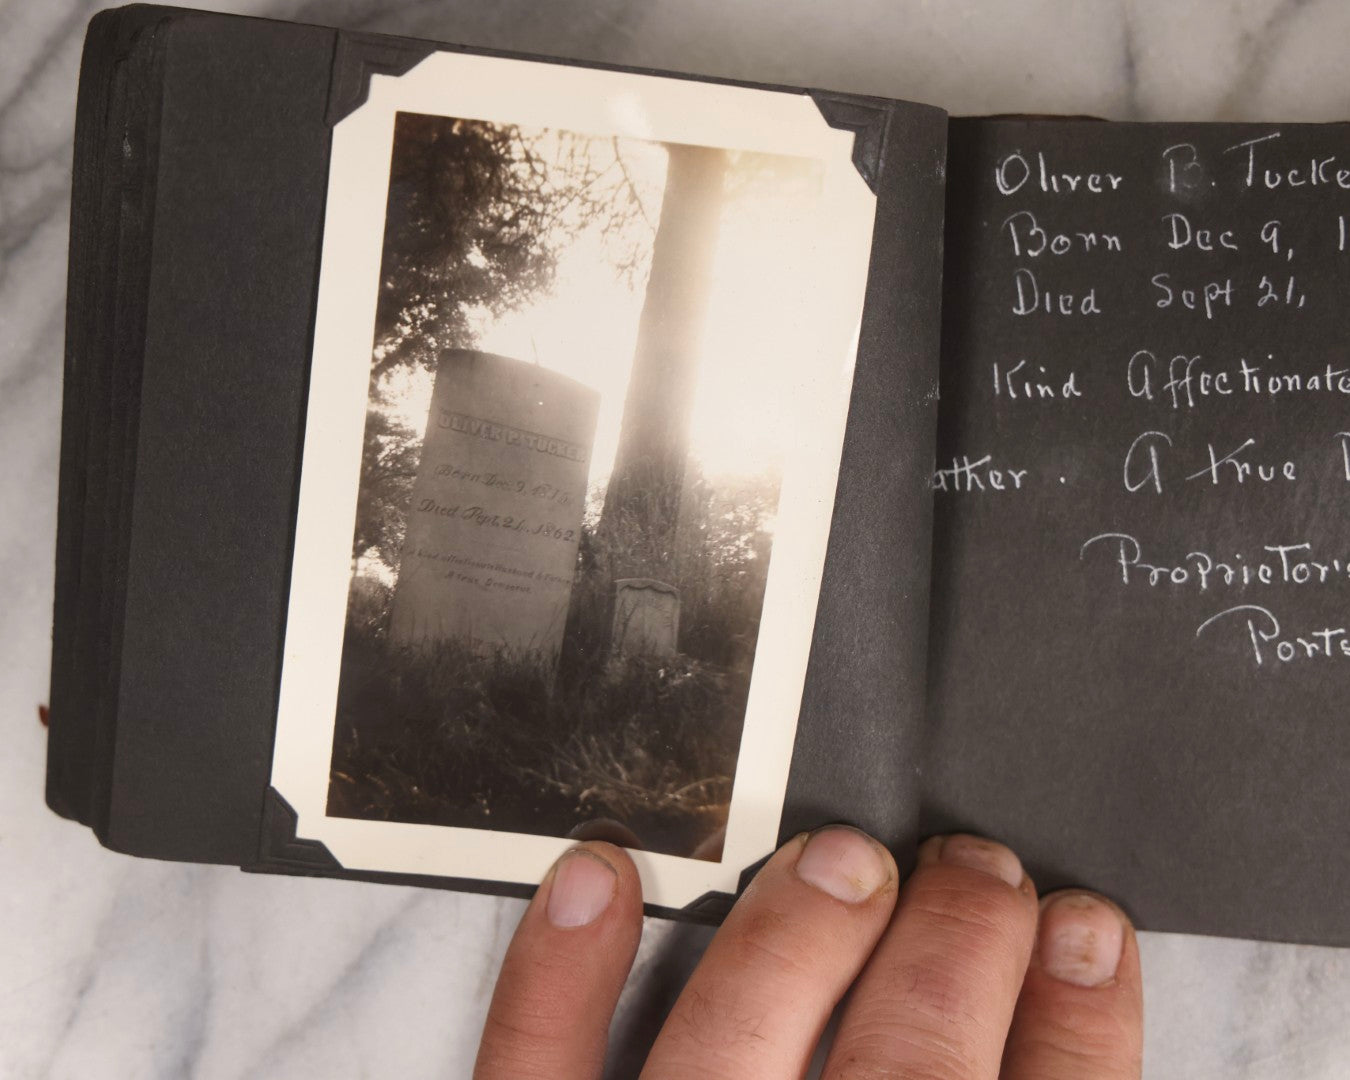 OLIVER P. TUCKER
Born Dec. 9, 18
Died Sept. 21, 1862.
A kind affectionate Husband & Father
A true Democrat
Oliver B. Tucke
Born Dec 9, 1
Died Sept 21,
Kind Affectionate
ather. A true
Proprietor's
Ports